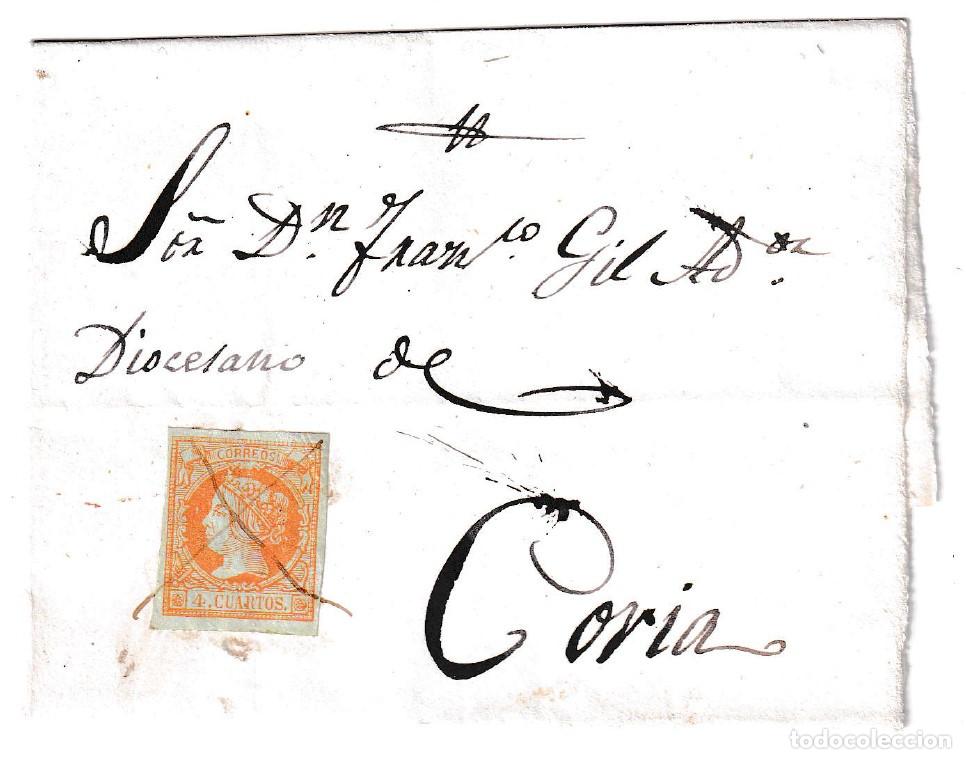 Sor. Dn. Franco. Gil Ador.
Diocesano de
CORREOS
4. CUARTOS.
Coria
todocoleccion